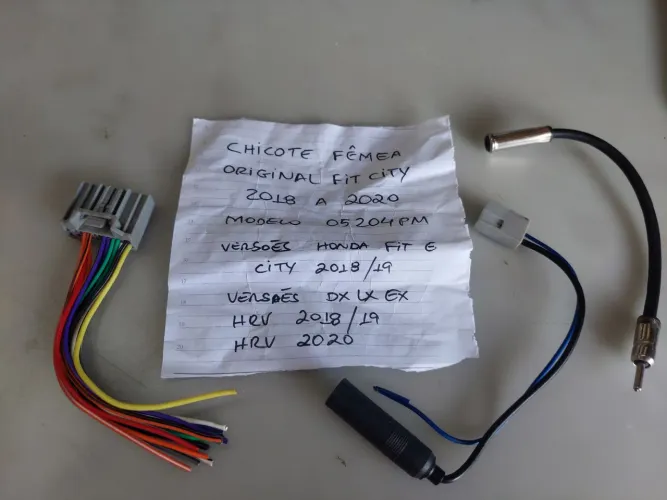 CHICOTE FÊMEA
ORIGINAL FIT CITY
2018 A 2020
MODELO 05204PM
VERSÕES HONDA FIT E
CITY 2018/19
VERSÕES DX LX EX
HRV 2018/19
HRV 2020